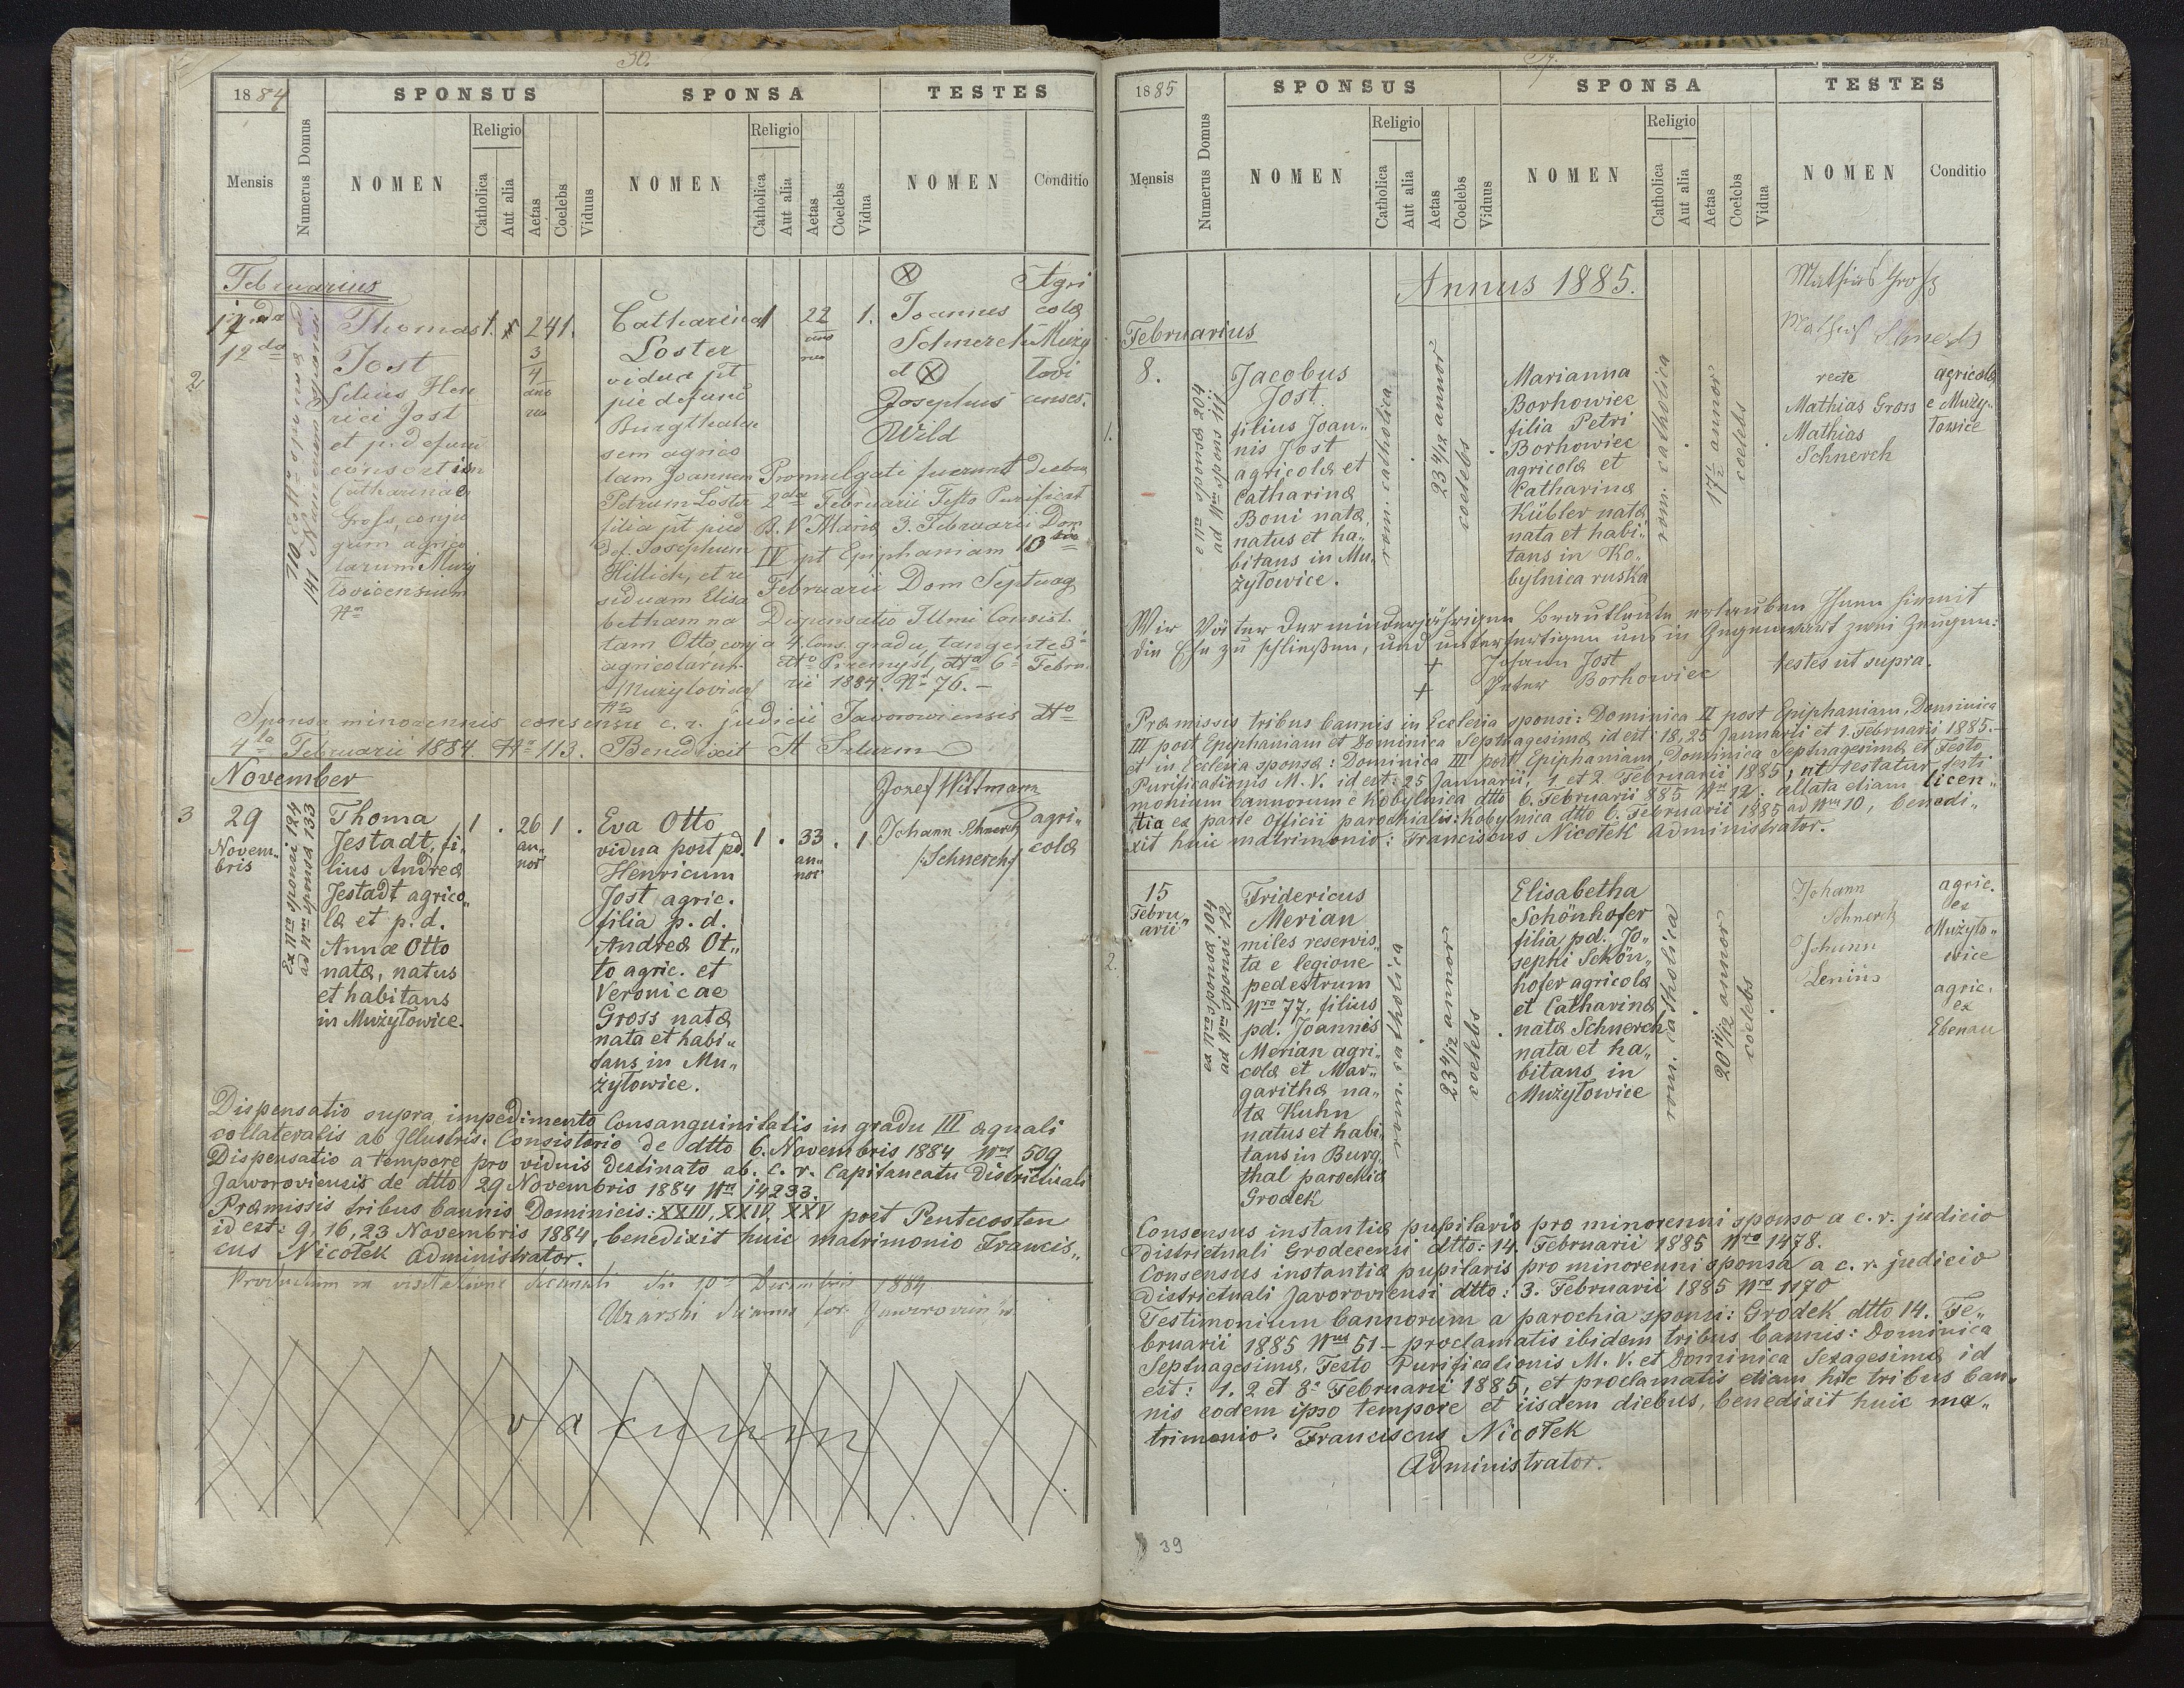 30.
1884
SPONSUS
SPONSA
TESTES
Mensis
Numerus Domus
NOMEN
Religio
Catholica
Aut alia
Aetas
Coelebs
Viduus
NOMEN
Religio
Catholica
Aut alia
Aetas
Coelebs
Vidua
NOMEN
Conditio
Februarius
12da
2
Thomas
Jost
filius Hen
rici Jost
et p. defunc
consortium
Catharinae
Gross, conju
gum agrico
larum Muży
lovicensium
1.
24
3
4
1.
Catharina
Loster
vidua pt
pie defunc
Burgthalen
sem agrico
lam Joannem
Petrum Loster
filia pt pied
def. Josephum
Hillich, et re
siduam Elisa
betham na
tam Otto, conj
agricolarum
Mużylovicen
1
22
1.
Joannes
Schnerch
d
Josephus
Wild
Agri
colæ
Muży
lovi
censes.
Promulgati fuerunt diebus
2da Februarii Festo Purificat
B. V. Mariæ 3. Februarii Dom
IV pt Epiphaniam 10
Februarii Dom Septuag
Dispensatio Illmi Consist.
a 4. Cons. gradu, tangente 3
dto Premysl, dto 6 Februa
rii 1884. No 76. –
Sponsa minorennis consensu c. r. judicii Javoroviensis dto
Februarii 1884 No 113. Benedixit St Szturm
November
3
29
Novem„
bris
Ex Nro sponsi 124
ad Nrum sponsæ 133
Thoma
Jestadt, fi„
lius Andreæ
Jestadt agrico„
læ et p. d.
Annæ Otto
natæ, natus
et habitans
in Mużyłowice.
1
.
26
an„
nor
1
.
Eva Otto
vidua post pd.
Henricum
Jost agric.
filia p. d.
Andreæ Ot„
to agric. et
Veronicae
Gross natæ
nata et habi„
tans in Mu„
żyłowice.
1
.
33
an„
nor
.
1
Jozef Wittmann
Johann Schnerch
/Schnerch/
agri„
colæ
Dispensatio supra impedimento Consanguinitatis in gradu III æquali
collateralis ab Illustris. Consistorio de dtto 6. Novembris 1884 Nro 509
Dispensatio a tempore pro viduis destinato ab. c. r. Capitaneatu Districtuali
Jaworoviensis de dtto 29 Novembris 1884 Nro 14233.
Præmissis tribus bannis Dominicis: XXIII, XXIV, XXV post Pentecosten
id est: 9, 16, 23 Novembris 1884, benedixit huic matrimonio Francis„
cus Nicotek Administrator.
Productum in visitatione decanali die 10 Decembris 1884
vacuum
1885
SPONSUS
SPONSA
TESTES
Mensis
Numerus Domus
NOMEN
Religio
Catholica
Aut alia
Aetas
Coelebs
Viduus
NOMEN
Religio
Catholica
Aut alia
Aetas
Coelebs
Vidua
NOMEN
Conditio
Annus 1885.
Februarius
1.
8.
e Nro sponsæ 204
ad Nrum sponsi 111
Jacobus
Jost
filius Joan„
nis Jost
agricolæ et
Catharinæ
Boni natæ,
natus et ha„
bitans in Mu„
żyłowice.
rom. catholica
.
23 4/12 annor
coelebs
.
Marianna
Borhowiec
filia Petri
Borhowiec
agricolæ et
Catharinæ
Kübler natæ
nata et habi„
tans in Ko„
bylnica ruska
rom. catholica
.
17 1/2 annor
coelebs
.
Mathias Gross
Mathias Schnerch
recte
Mathias Gross
Mathias
Schnerch
agricolæ
e Muży„
łowice
Wir Väter der minderjährigen Brautleute erlauben Ihnen hiemit
die Ehe zu schließen, und unterfertigen uns in Gegenwart zwei Zeugen:
+ Johann Jost
testes ut supra.
+ Peter Borhowiec
Præmissis tribus bannis in Ecclesia sponsi: Dominica II post Epiphaniam, Dominica
III post Epiphaniam et Dominica Septuagesima, id est: 18, 25 Januarii et 1. Februarii 1885.–
et in Ecclesia sponsæ: Dominica III post Epiphaniam, Dominica Septuagesima et Festo
Purificationis M. V. id est: 25 Januarii, 1 et 2 Februarii 1885, ut testatur testi
monium bannorum e Kobylnica dtto 6. Februarii 885 Nro 12. allata etiam licen„
tia ex parte Officii parochialis: Kobylnica dtto 6. Februarii 1885 ad Nrum 10, benedi„
xit huic matrimonio: Franciscus Nicotek Administrator.
2.
15
Febru„
arii
ex Nro sponsæ 104
ad Nrum sponsi 12
Fridericus
Merian
miles reservis„
ta e legione
pedestrum
Nro 77, filius
pd. Joannis
Merian agri„
colæ et Mar„
garithæ na„
tæ Kuhn
natus et habi„
tans in Burg„
thal parochiæ
Grodek
rom. catholica
.
23 4/12 annor
coelebs
.
Elisabetha
Schönhofer
filia pd. Jo„
sephi Schön„
hofer agricolæ
et Catharinæ
natæ Schnerch
nata et ha„
bitans in
Mużyłowice
rom. catholica
.
20 11/12 annor
coelebs
.
Johann
Schnerch
Johann
Lenius
agric.
ex
Mużyło„
wice
agric.
ex
Ebenau
Consensus instantiæ pupilaris pro minorenni sponso a c. r. judicio
districtuali Grodecensi dtto: 14. Februarii 1885 Nro 1478.
Consensus instantiæ pupilaris pro minorenni sponsa a c. r. judicio
districtuali Javoroviensi dtto: 3. Februarii 1885 Nro 1170
Testimonium bannorum a parochia sponsi: Grodek dtto 14. Fe„
bruarii 1885 Nrus 51 – proclamatis ibidem tribus bannis: Dominica
Septuagesima, Festo Purificationis M. V. et Dominica Sexagesima id
est: 1. 2 et 8. Februarii 1885, et proclamatis etiam hic tribus ban„
nis eodem ipso tempore et iisdem diebus, benedixit huic ma„
trimonio: Franciscus Nicotek
Administrator.
39